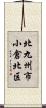 北九州市小倉北区